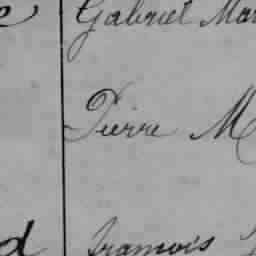 Gabriel Mar
Pierre M
d francois